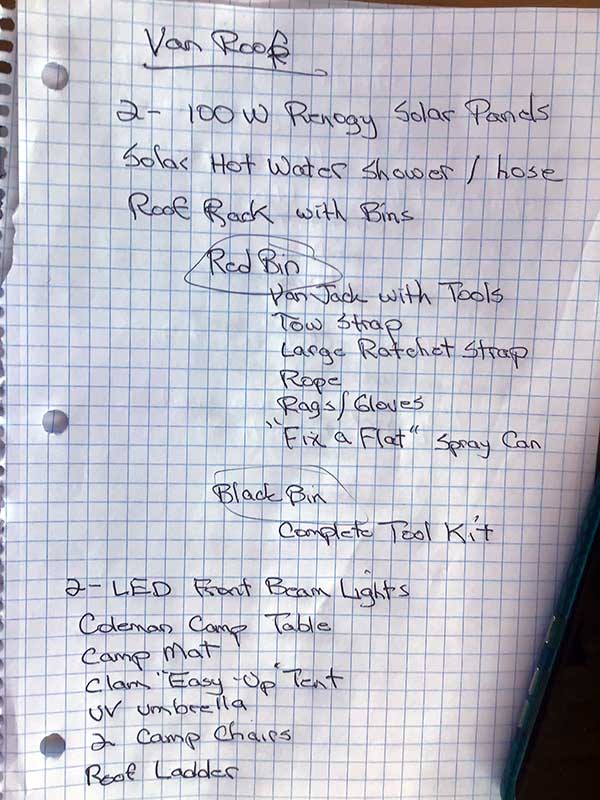 Van Roof
2- 100W Renogy Solar Panels
Solar Hot Water Shower / hose
Roof Rack with Bins
Red Bin
Van Jack with Tools
Tow Strap
Large Ratchet Strap
Rope
Rags/Gloves
"Fix a Flat" Spray Can
Black Bin
Complete Tool Kit
2- LED Front Beam Lights
Coleman Camp Table
Camp Mat
Clam "Easy-Up" Tent
UV umbrella
2 Camp Chairs
Roof Ladder